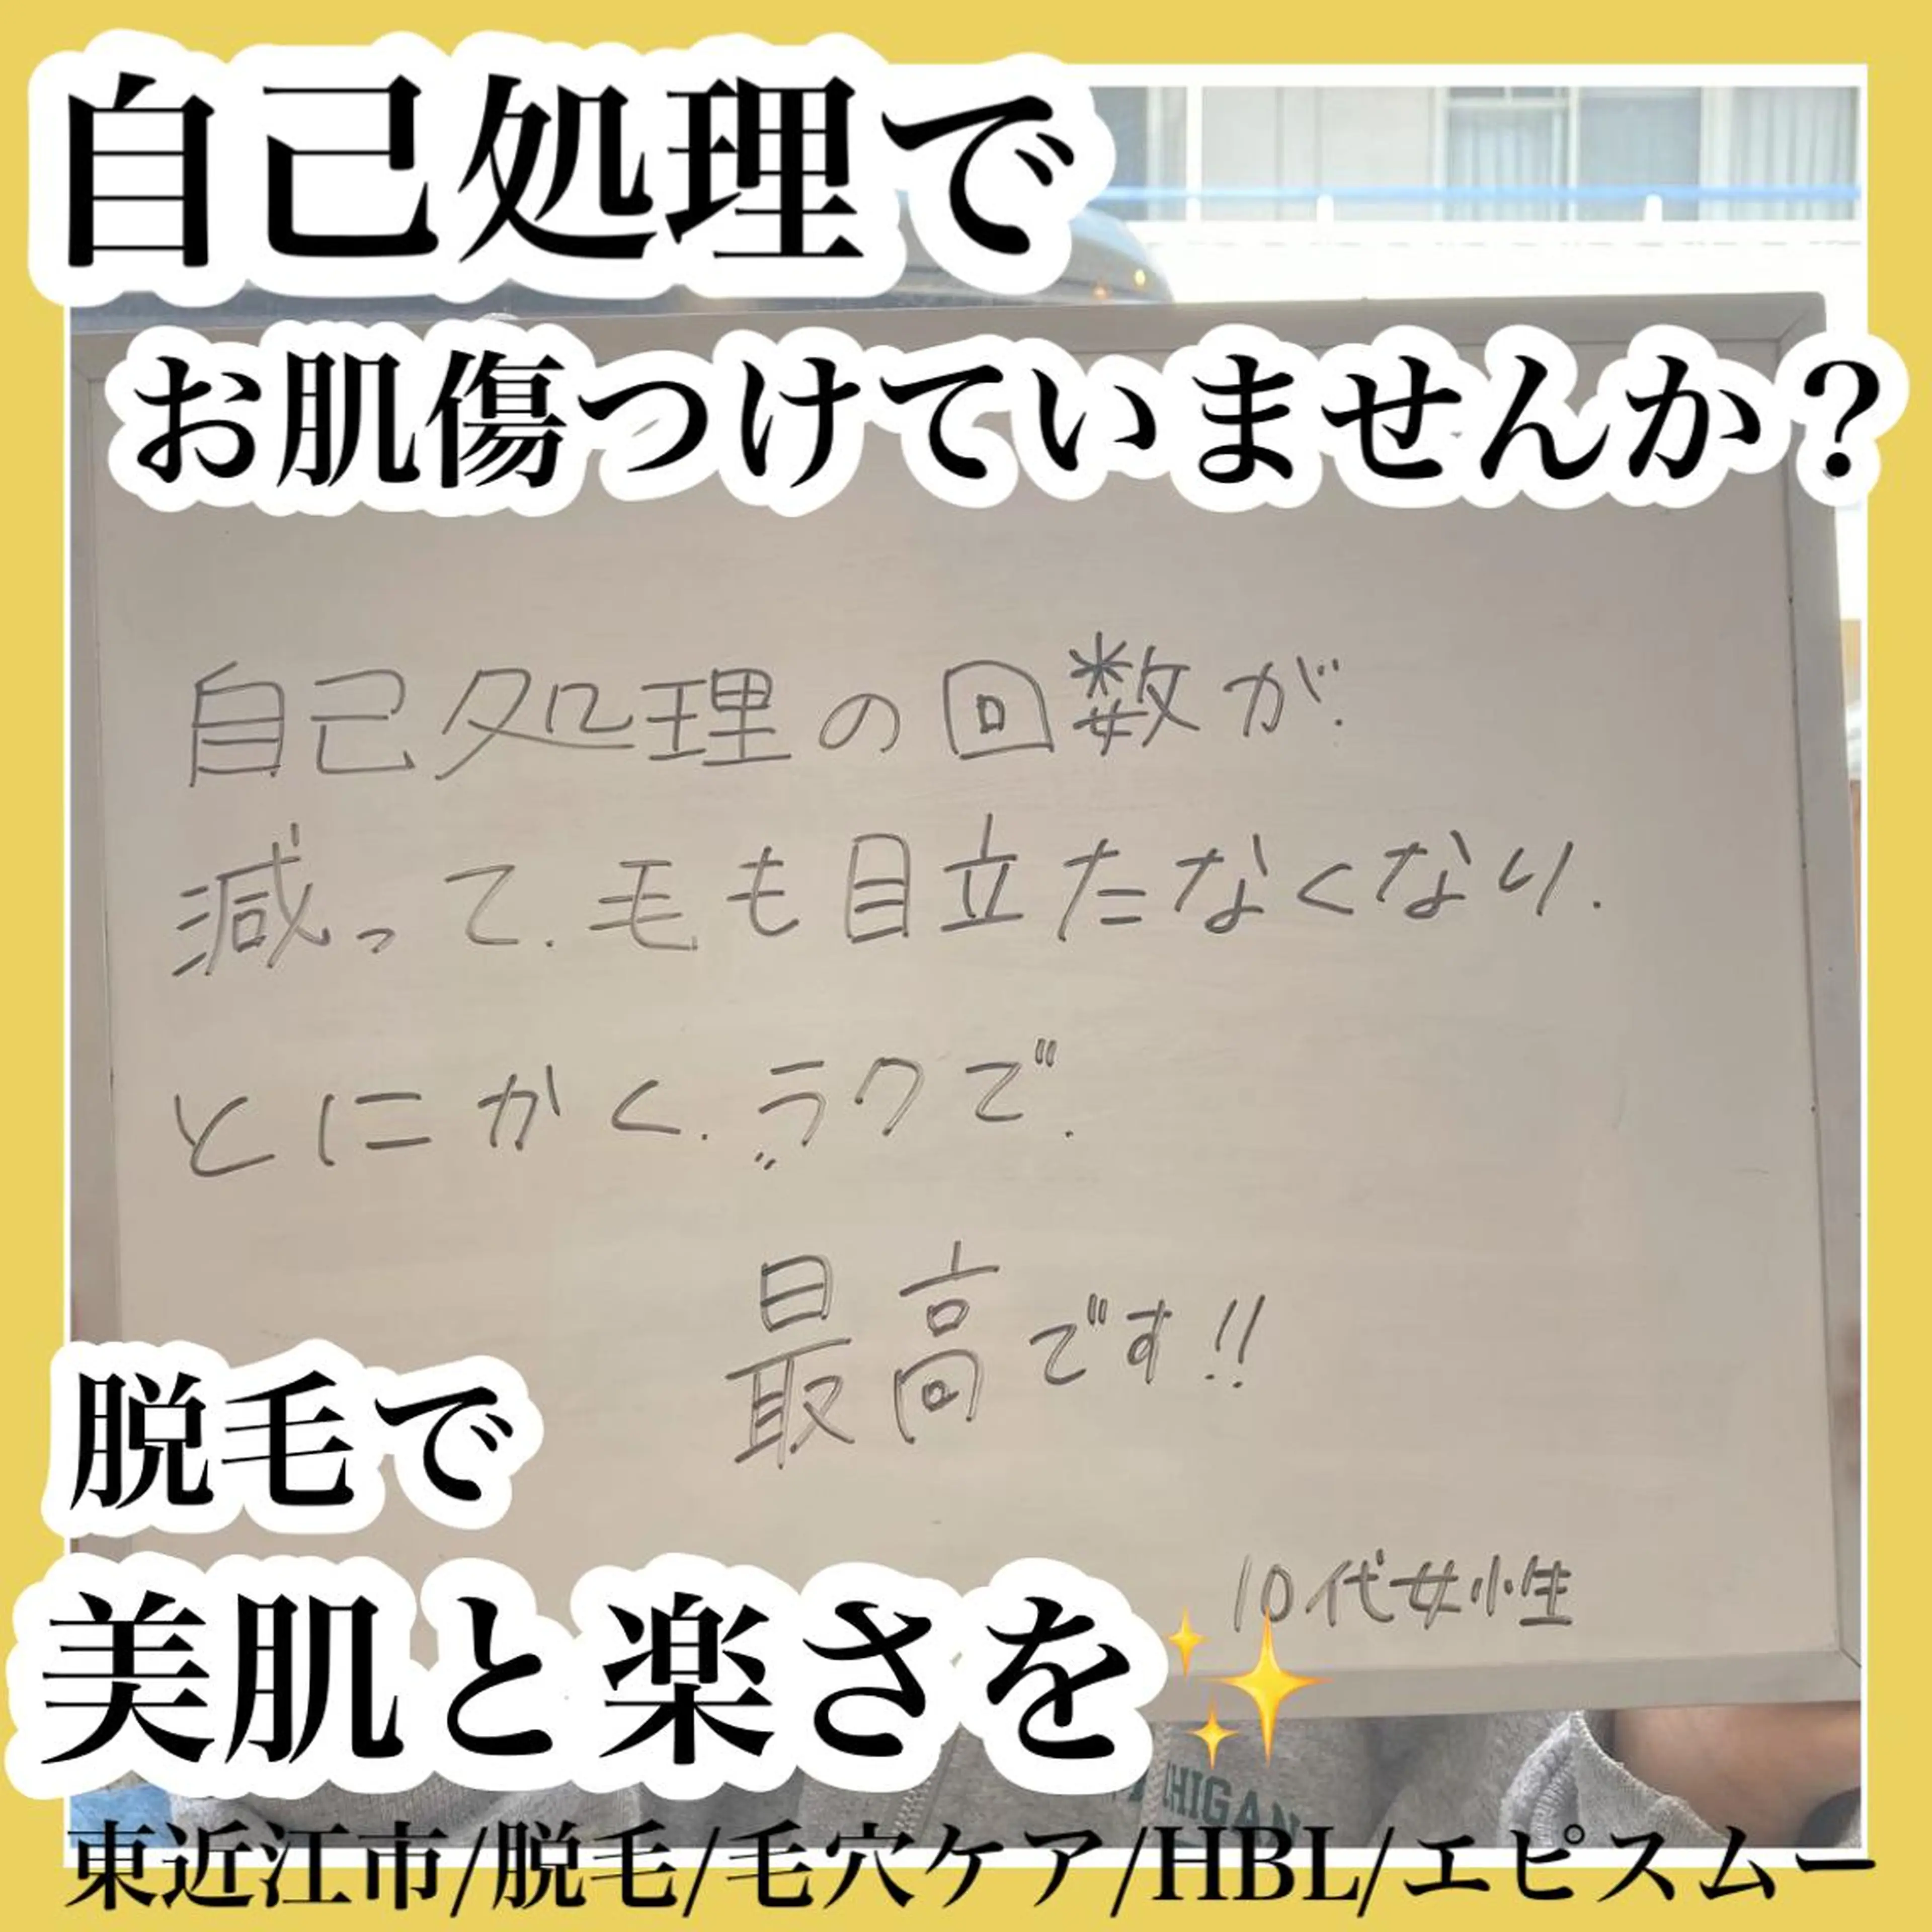 自己処理で
お肌傷つけていませんか？
自己処理の回数が.
減って.毛も目立たなくなり.
とにかく.ラクで.
最高です!!
10代女性
脱毛で
美肌と楽さを✨
HIGAN
東近江市/脱毛/毛穴ケア/HBL/エピスムー